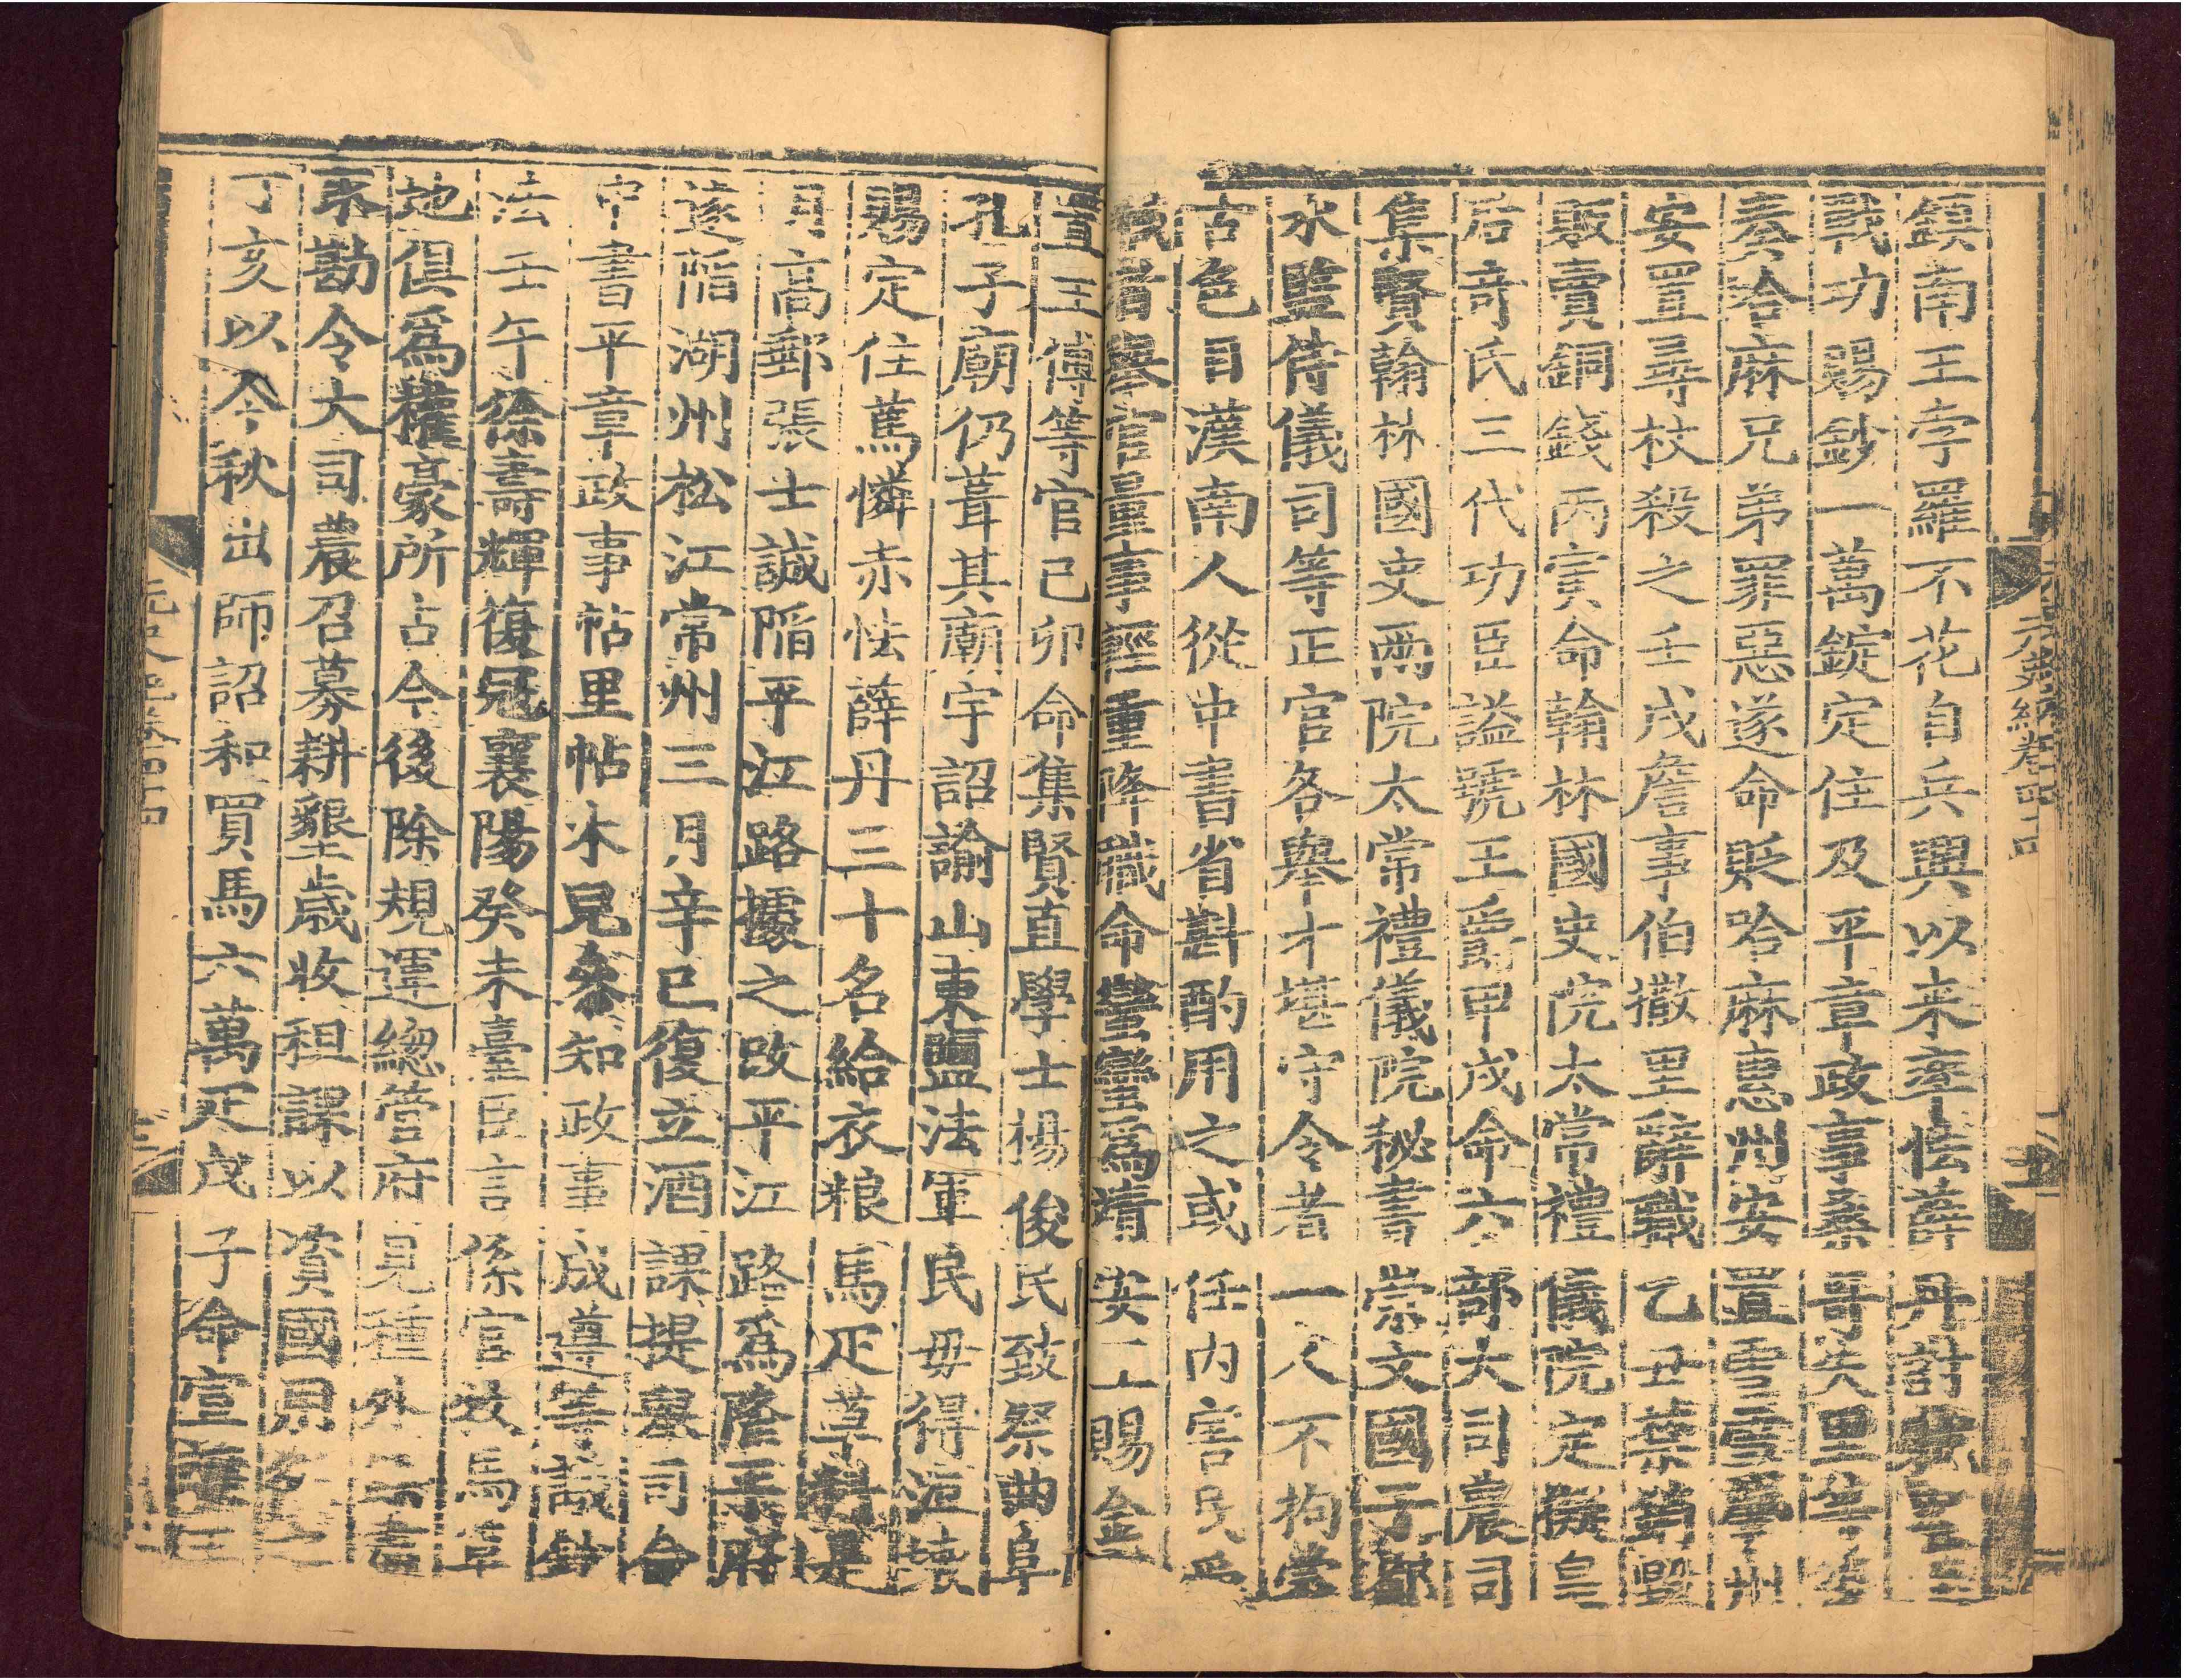 鎮南王孛羅不花自兵興以来率怯薛丹討賊
戰功賜鈔一萬錠定住及平章政事桑哥失里等
奏哈麻兄弟罪惡遂命貶哈麻惠州安置雪雪肇州
安置尋杖殺之壬戌詹事伯撒里辭職乙丑禁銷毀
販賣銅錢丙寅命翰林國史院太常禮儀院定擬皇
后竒氏三代功臣謚號王爵甲戌命六部大司農司
集賢翰林國史兩院太常禮儀院秘書崇文國子都
水監侍儀司等正官各舉才堪守令者一人不拘蒙
古色目漢南人從中書省斟酌用之或任内害民爲
舉官量事輕重降職命蠻蠻爲靖安王賜金
置王傅等官己卯命集賢直學士楊俊民致祭曲阜
孔子廟仍葺其廟宇詔諭山東鹽法軍民毋得沮壞
賜定住篤憐赤怯薛丹三十名給衣粮馬疋草料是
月高郵張士誠陷平江路據之改平江路爲隆平府
遂陷湖州松江常州三月辛巳復立酒課提舉司命
中書平章政事帖里帖木兒叅知政事成遵等議鈔
法壬午徐壽輝復冦襄陽癸未臺臣言係官牧馬草
地俱爲權豪所占今後除規運總管府見種外
勘令大司農召募耕墾歲收租課以資國用
丁亥以今秋出師詔和買馬六萬疋戊子命宣讓王